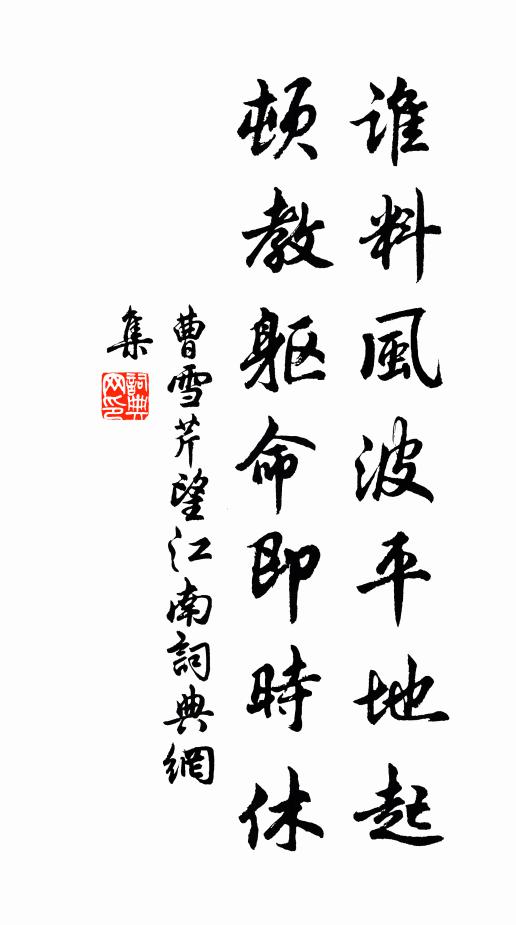 誰料風波平地起
頓教軀命即時休
曹雪芹望江南詞典網
集
詞典
网印